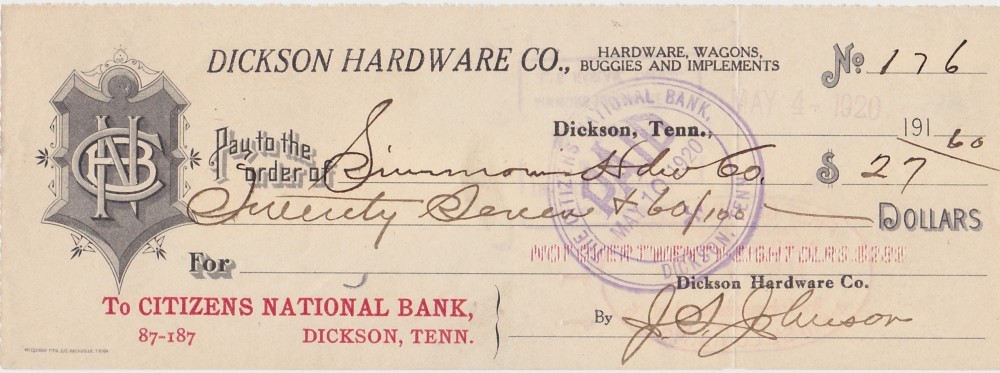 DICKSON HARDWARE CO., HARDWARE, WAGONS,
BUGGIES AND IMPLEMENTS
No. 176
MAY 4 - 1920
Dickson, Tenn., 191
Pay to the
order of Simmons Hdw Co. $ 27 60
Twenty Seven & 60/100 DOLLARS
THE CITIZENS NATIONAL BANK,
PAID
MAY 10 1920
DICKSON, TENN.
For
NOT OVER TWENTY EIGHT DOLRS $28$
To CITIZENS NATIONAL BANK,
87-187 DICKSON, TENN.
Dickson Hardware Co.
By J. S. Johnson
NCB